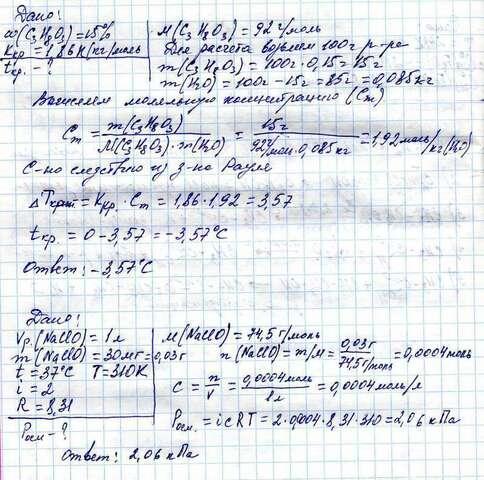 Дано:
ω(C₃H₈O₃)=15%
Kкр=1,86К·кг/моль
tкр. - ?
M(C₃H₈O₃)=92 г/моль
Для расчета возьмем 100г р-ра
m(C₃H₈O₃)=100г·0,15=15г
m(H₂O)=100г-15г=85г=0,085кг
Вычислем моляльную концентрацию (Cm)
Cm = m(C₃H₈O₃)/M(C₃H₈O₃)·m(H₂O) = 15г/92г/моль·0,085кг = 1,92моль/кг(H₂O)
С-но следствию из з-на Рауля
ΔTкрист=Kкр.·Cm=1,86·1,92=3,57
tкр.=0-3,57=-3,57°C
Ответ: -3,57°C
Дано:
Vр.(NaClO)=1л
m(NaClO)=30мг=0,03г
t=37°C T=310K
i=2
R=8,31
Pосм-?
M(NaClO)=74,5г/моль
n(NaClO)=m/M=0,03г/74,5г/моль=0,0004моль
C=n/V=0,0004моль/1л=0,0004моль/л
Pосм.=icRT=2·0,0004·8,31·310=2,06кПа
Ответ: 2,06кПа